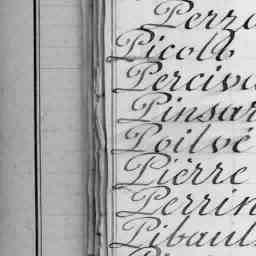 Perzo
Picolo
Perciva
Pinsar
Poilvé
Piërre
Perrin
Pibaul